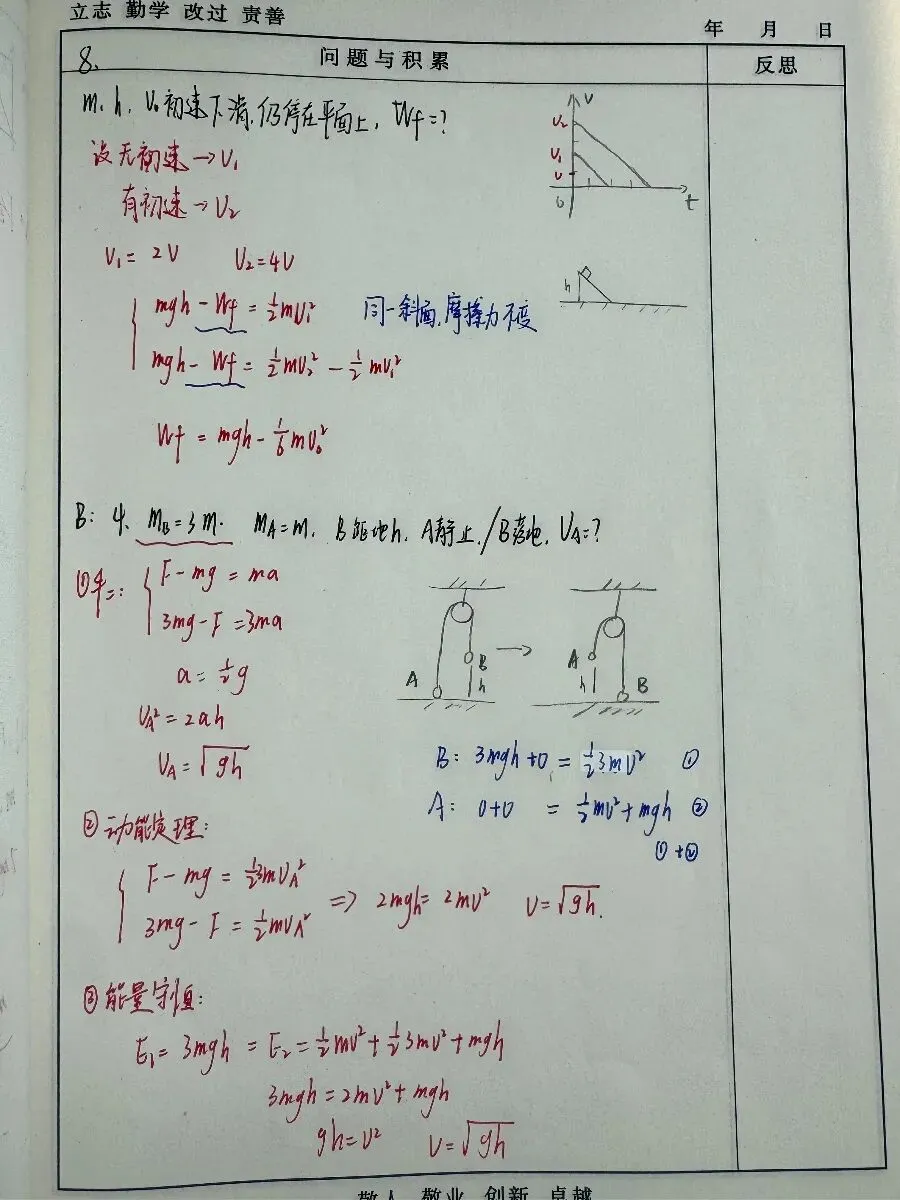 立志 勤学 改过 责善
年 月 日
问题与积累
反思
8.
m, h, V₀初速下滑,仍停在平面上, Wf=?
设无初速→V₁
有初速→V₂
V₁= 2V V₂=4V
mgh - Wf = ½mV₁²
同一斜面,摩擦力不变
mgh - Wf = ½mV₂² - ½mV₁²
Wf = mgh - 1/6 mV₀²
V
V₂
V₁
V
0
t
h
B: 4. m_B=3m. m_A=m, B距地h, A静止,/B落地, V_A=?
①牛二: F-mg = ma
3mg-F =3ma
a = ½g
V_A² = 2ah
V_A = √gh
A B h
→
A h B
B: 3mgh+0 = ½3mV² ①
A: 0+0 = ½mV²+mgh ②
①+②
②动能定理:
F-mg = ½3mV_A²
3mg-F = ½mV_A²
=> 2mgh= 2mV² V=√gh.
③能量守恒:
E₁= 3mgh = E₂ = ½mV²+½3mV²+mgh
3mgh = 2mV²+mgh
gh=V² V=√gh
敬人 敬业 创新 卓越